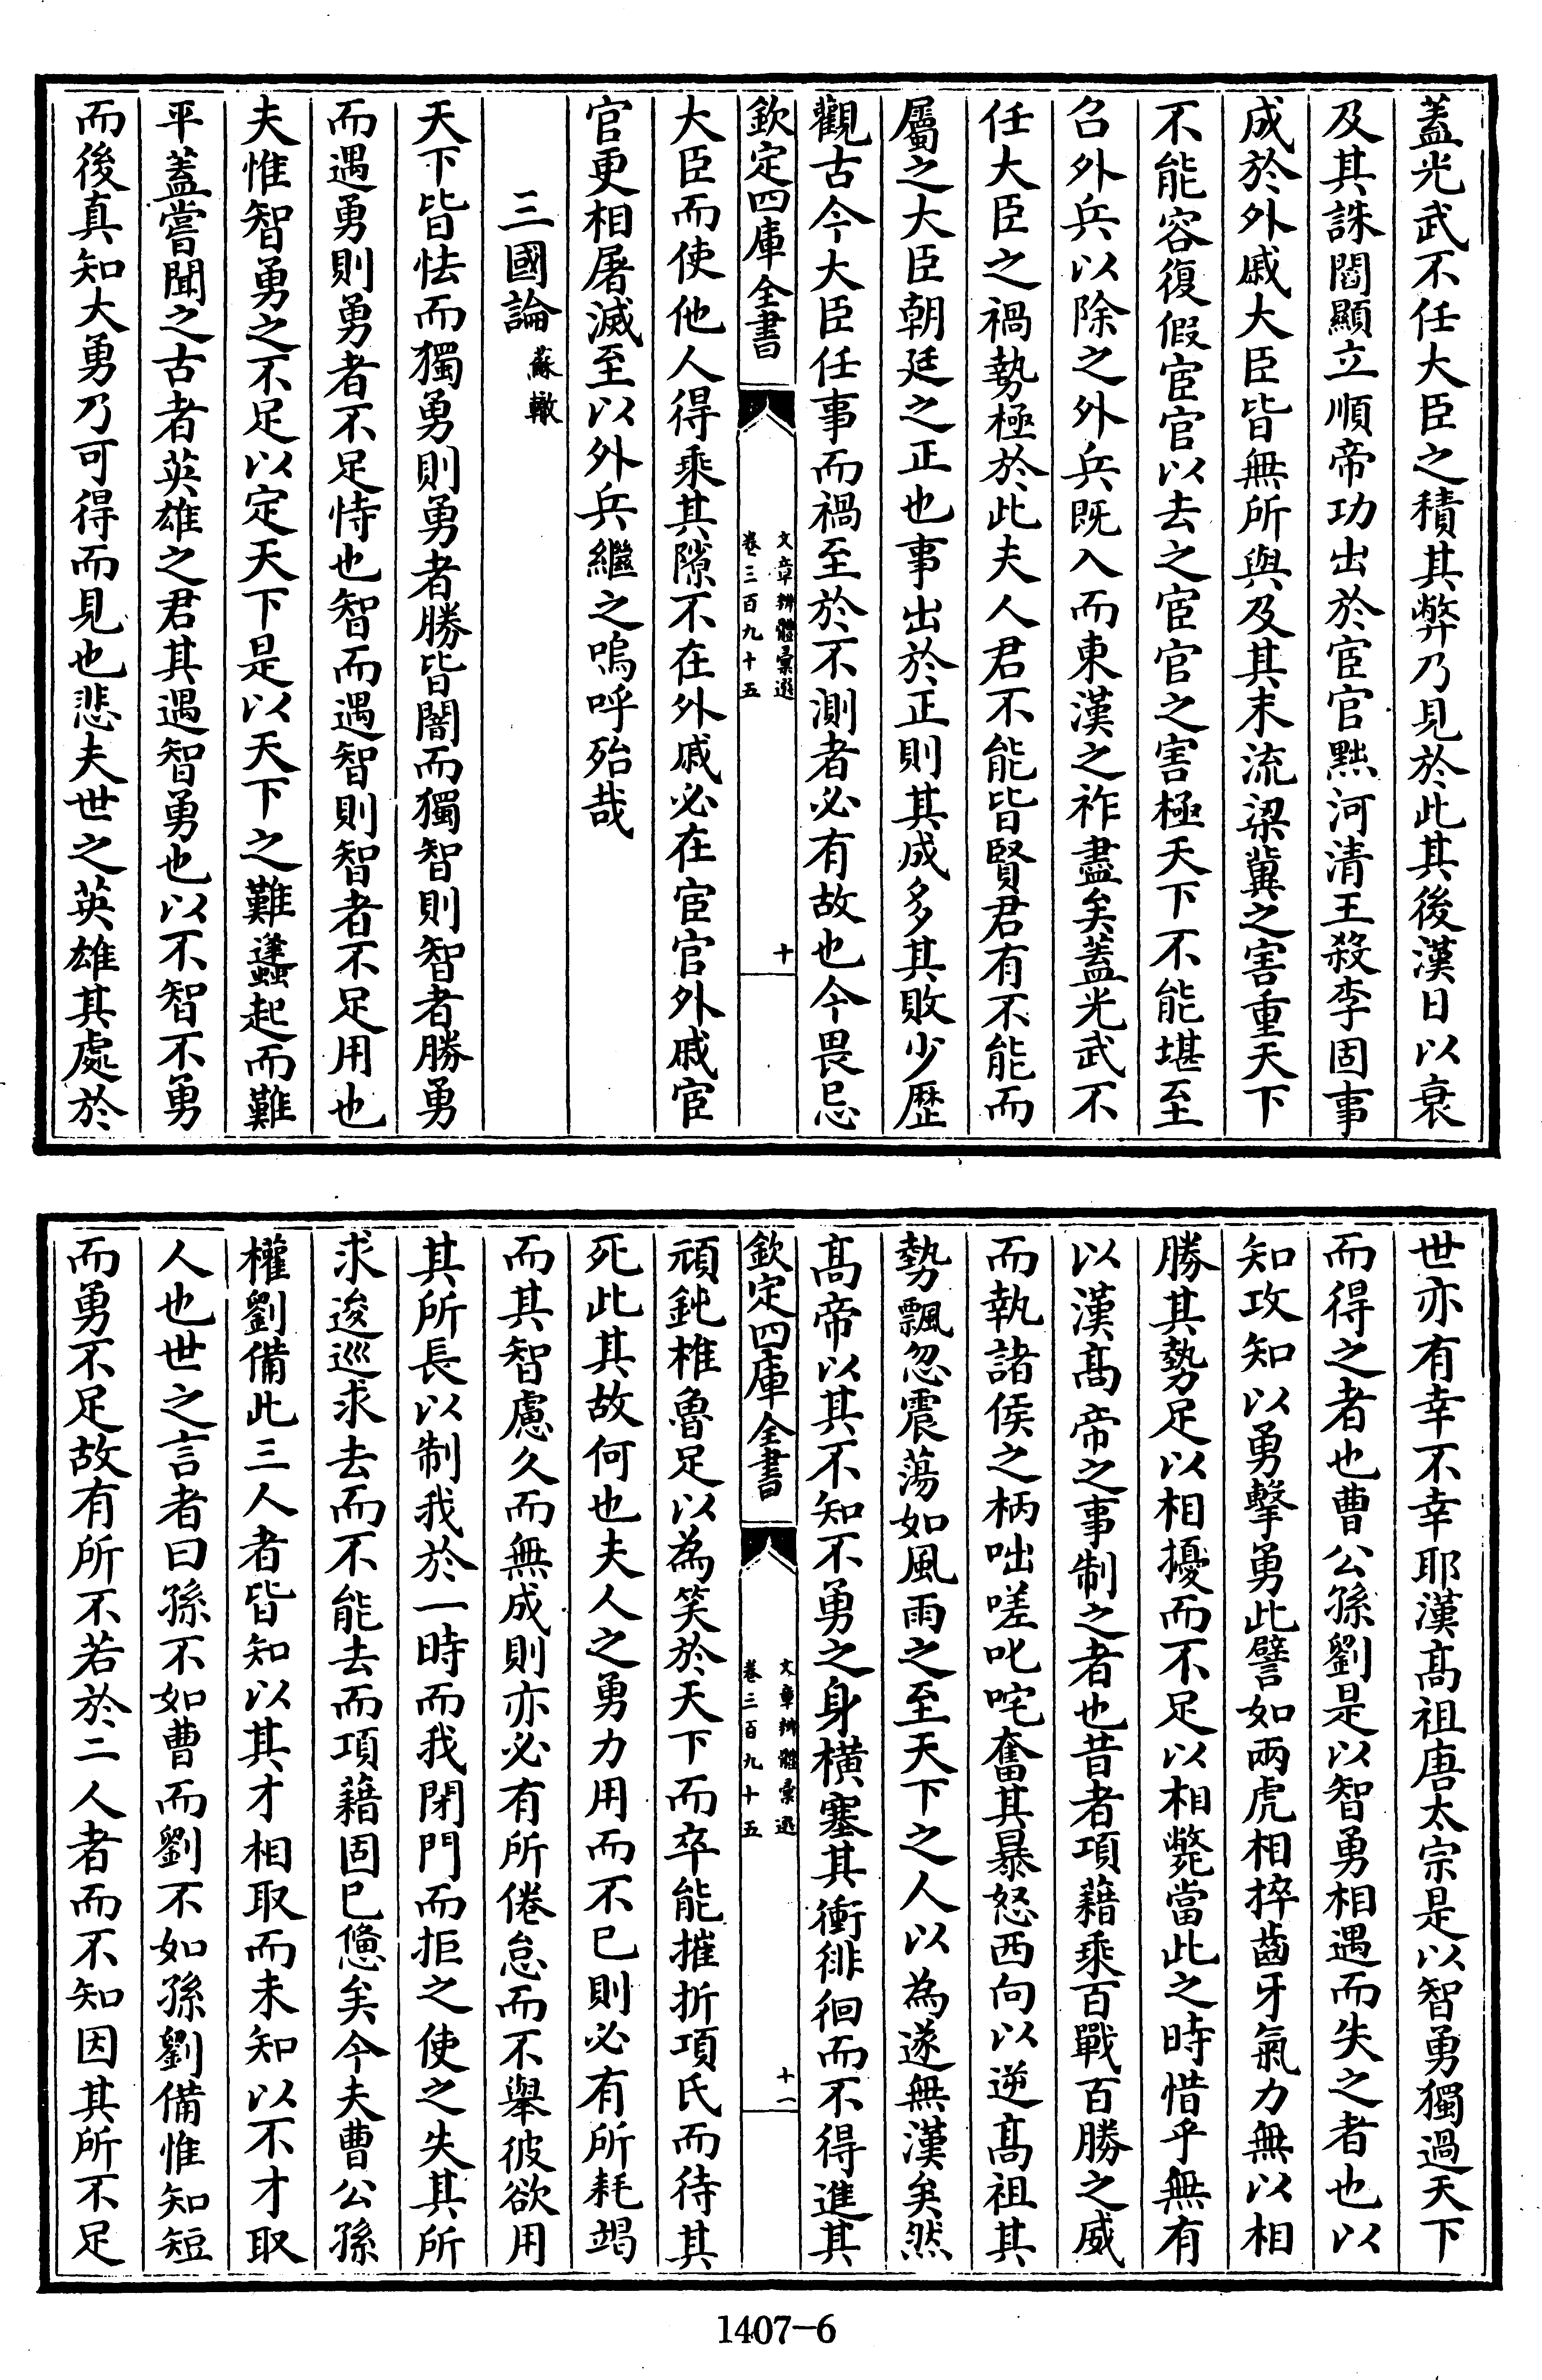 蓋光武不任大臣之積其弊乃見於此其後漢日以衰
及其誅閻顯立順帝功出於宦官黜河清王殺李固事
成於外戚大臣皆無所與及其末流梁冀之害重天下
不能容復假宦官以去之宦官之害極天下不能堪至
召外兵以除之外兵既入而東漢之祚盡矣蓋光武不
任大臣之禍勢極於此夫人君不能皆賢君有不能而
屬之大臣朝廷之正也事出於正則其成多其敗少歴
觀古今大臣任事而禍至於不測者必有故也今畏忌
欽定四庫全書
文章辨體彙選
卷三百九十五
十
大臣而使他人得乘其隙不在外戚必在宦官外戚宦
官更相屠滅至以外兵繼之嗚呼殆哉
三國論 蘇轍
天下皆怯而獨勇則勇者勝皆闇而獨智則智者勝勇
而遇勇則勇者不足恃也智而遇智則智者不足用也
夫惟智勇之不足以定天下是以天下之難蠭起而難
平蓋嘗聞之古者英雄之君其遇智勇也以不智不勇
而後真知大勇乃可得而見也悲夫世之英雄其處於
世亦有幸不幸耶漢髙祖唐太宗是以智勇獨過天下
而得之者也曹公孫劉是以智勇相遇而失之者也以
知攻知以勇擊勇此譬如兩虎相捽齒牙氣力無以相
勝其勢足以相擾而不足以相斃當此之時惜乎無有
以漢髙帝之事制之者也昔者項藉乘百戰百勝之威
而執諸侯之柄咄嗟叱咤奮其暴怒西向以逆髙祖其
勢飄忽震蕩如風雨之至天下之人以為遂無漢矣然
髙帝以其不知不勇之身橫塞其衝徘徊而不得進其
欽定四庫全書
文章辨體彙選
卷三百九十五
十一
頑鈍椎魯足以為笑於天下而卒能摧折項氏而待其
死此其故何也夫人之勇力用而不已則必有所耗竭
而其智慮久而無成則亦必有所倦怠而不舉彼欲用
其所長以制我於一時而我閉門而拒之使之失其所
求逡巡求去而不能去而項藉固已憊矣今夫曹公孫
權劉備此三人者皆知以其才相取而未知以不才取
人也世之言者曰孫不如曹而劉不如孫劉備惟知短
而勇不足故有所不若於二人者而不知因其所不足
1407-6